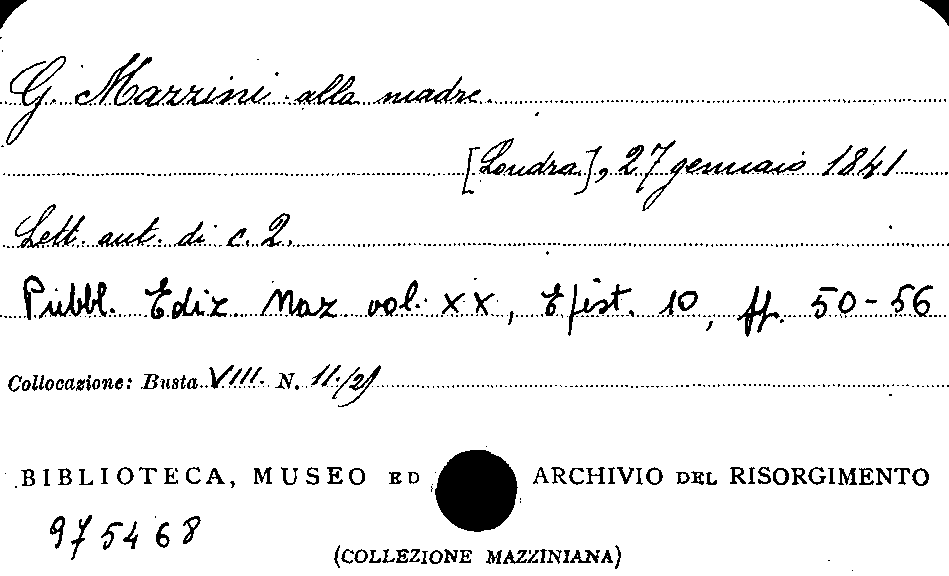 G. Mazzini alla madre.
[Londra], 27 gennaio 1841
Lett. aut. di c. 2.
Pubbl. Ediz. Naz. vol. XX, Epist. 10, pp. 50-56
Collocazione: Busta VIII. N. 11./2)
BIBLIOTECA, MUSEO ED ARCHIVIO DEL RISORGIMENTO
975468
(COLLEZIONE MAZZINIANA)